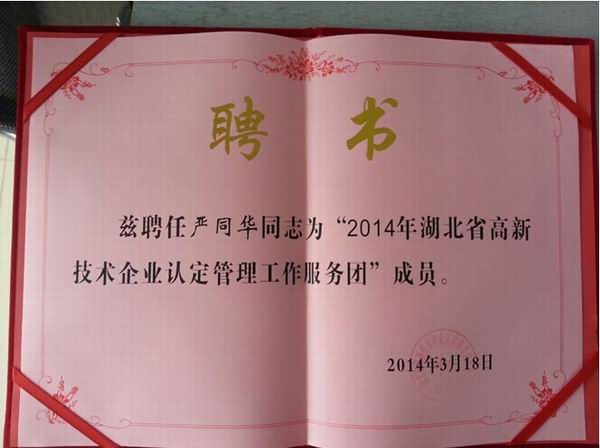 聘 书
兹聘任严同华同志为“2014年湖北省高新
技术企业认定管理工作服务团”成员。
2014年3月18日